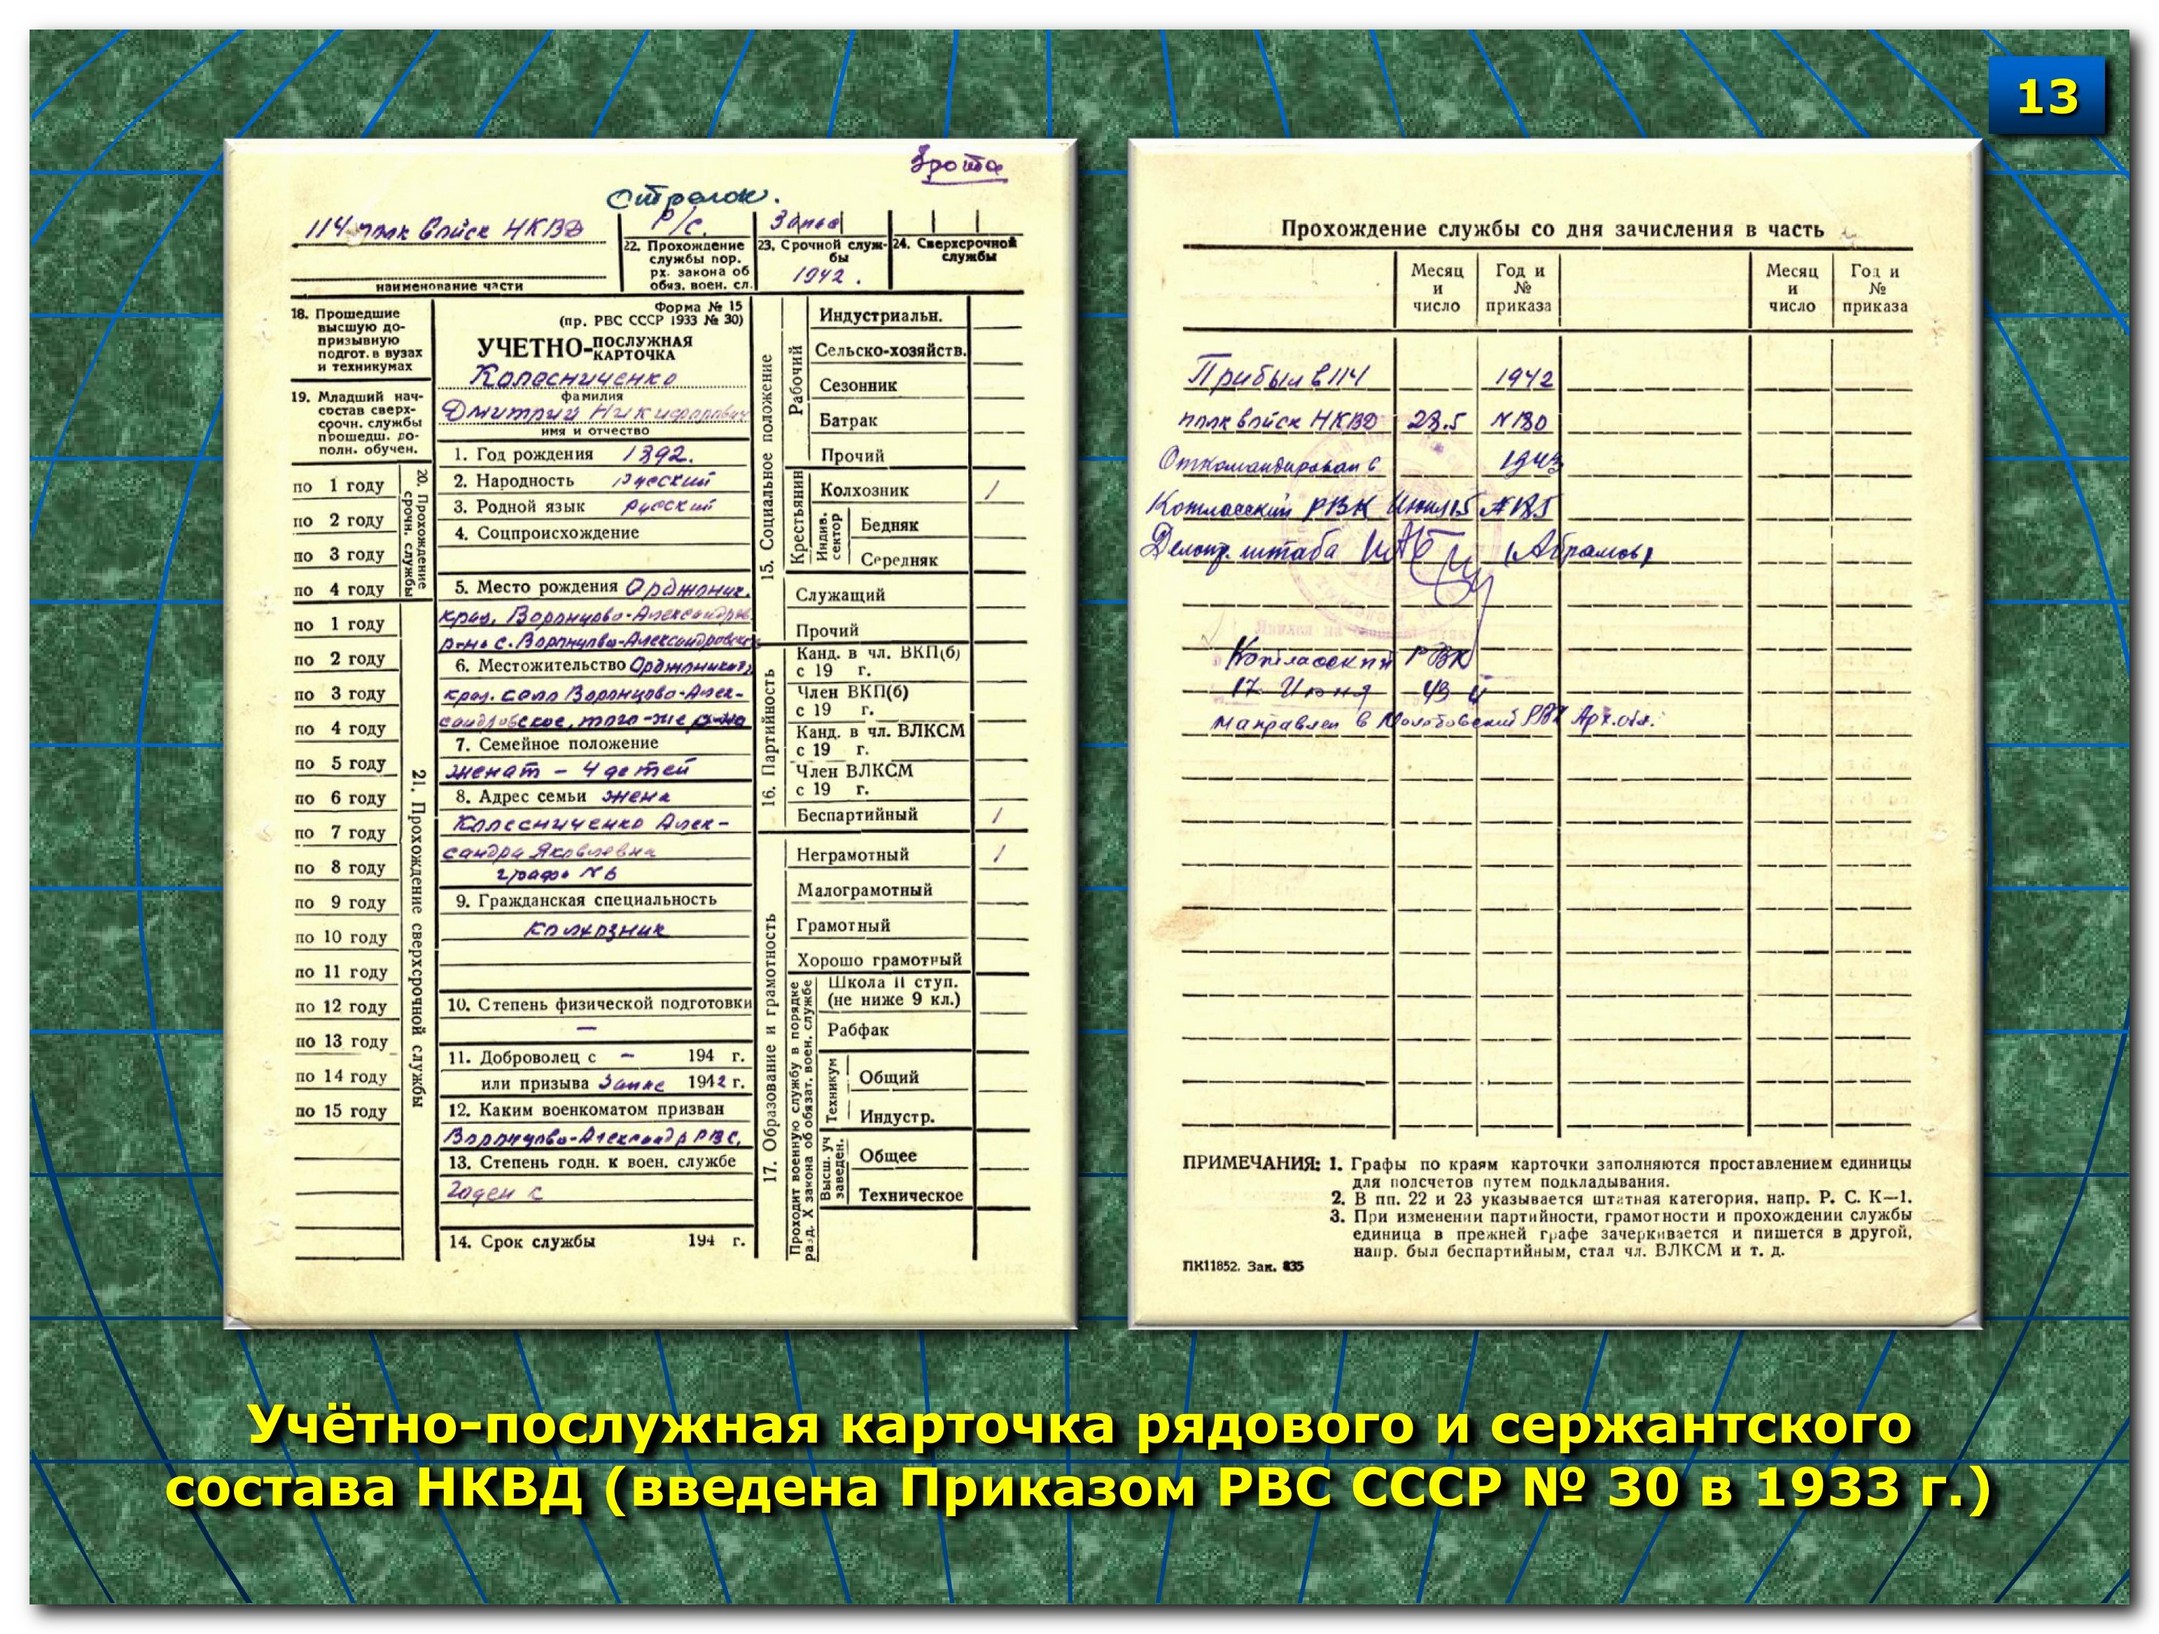 13
3 рота
Стрелок.
114 полк войск НКВД
наименование части
Р/с.
22. Прохождение
службы пор.
рх. закона об
обяз. воен. сл.
Запас
23. Срочной служ-
бы
1942.
24. Сверхсрочной
службы
18. Прошедшие
высшую до-
призывную
подгот. в вузах
и техникумах
19. Младший нач-
состав сверх-
срочн. службы
прошедш. до-
полн. обучен.
20. Прохождение
срочн. службы
по 1 году
по 2 году
по 3 году
по 4 году
21. Прохождение сверхсрочной службы
по 1 году
по 2 году
по 3 году
по 4 году
по 5 году
по 6 году
по 7 году
по 8 году
по 9 году
по 10 году
по 11 году
по 12 году
по 13 году
по 14 году
по 15 году
Форма № 15
(пр. РВС СССР 1933 № 30)
УЧЕТНО-ПОСЛУЖНАЯ
КАРТОЧКА
Колесниченко
фамилия
Дмитрий Никифорович
имя и отчество
1. Год рождения 1892.
2. Народность русский
3. Родной язык русский
4. Соцпроисхождение
5. Место рождения Орджоник.
край, Воронцово-Александров.
р-н с. Воронцово-Александровское
6. Местожительство Орджоникид.
край. село Воронцово-Алек-
сандровское, того-же р-на
7. Семейное положение
женат - 4 детей
8. Адрес семьи жена
Колесниченко Алек-
сандра Яковлевна
графа №6
9. Гражданская специальность
Колхозник
10. Степень физической подготовки
—
11. Доброволец с — 194 г.
или призыва Запас 1942 г.
12. Каким военкоматом призван
Воронцово-Александр РВС.
13. Степень годн. к воен. службе
Годен к
14. Срок службы 194 г.
15. Социальное положение
Рабочий
Индустриальн.
Сельско-хозяйств.
Сезонник
Батрак
Прочий
Крестьянин
Колхозник 1
Индив.
сектор
Бедняк
Середняк
Служащий
Прочий
16. Партийность
Канд. в чл. ВКП(б)
с 19 г.
Член ВКП(б)
с 19 г.
Канд. в чл. ВЛКСМ
с 19 г.
Член ВЛКСМ
с 19 г.
Беспартийный 1
17. Образование и грамотность
Неграмотный 1
Малограмотный
Грамотный
Хорошо грамотный
Проходит военную службу в порядке
разд. X закона об обязат. воен. службе
Школа II ступ.
(не ниже 9 кл.)
Рабфак
Техникум
Общий
Индустр.
Высш. уч
заведен.
Общее
Техническое
Прохождение службы со дня зачисления в часть
Месяц
и
число
Год и
№
приказа
Месяц
и
число
Год и
№
приказа
Прибыл в 114 1942
полк войск НКВД 23.5 №130
Откомандирован с 1943
Котласский РВК Июнь 15 №185
Делопр. штаба (Абрамов)
Котласский РВК
17 Июня 43 г
направлен в Молотовский РВК Арх. обл.
ПРИМЕЧАНИЯ: 1. Графы по краям карточки заполняются проставлением единицы
для подсчетов путем подкладывания.
2. В пп. 22 и 23 указывается штатная категория, напр. Р. С. К—1.
3. При изменении партийности, грамотности и прохождении службы
единица в прежней графе зачеркивается и пишется в другой,
напр. был беспартийным, стал чл. ВЛКСМ и т. д.
ПК11852. Зак. 835
Учётно-послужная карточка рядового и сержантского
состава НКВД (введена Приказом РВС СССР № 30 в 1933 г.)